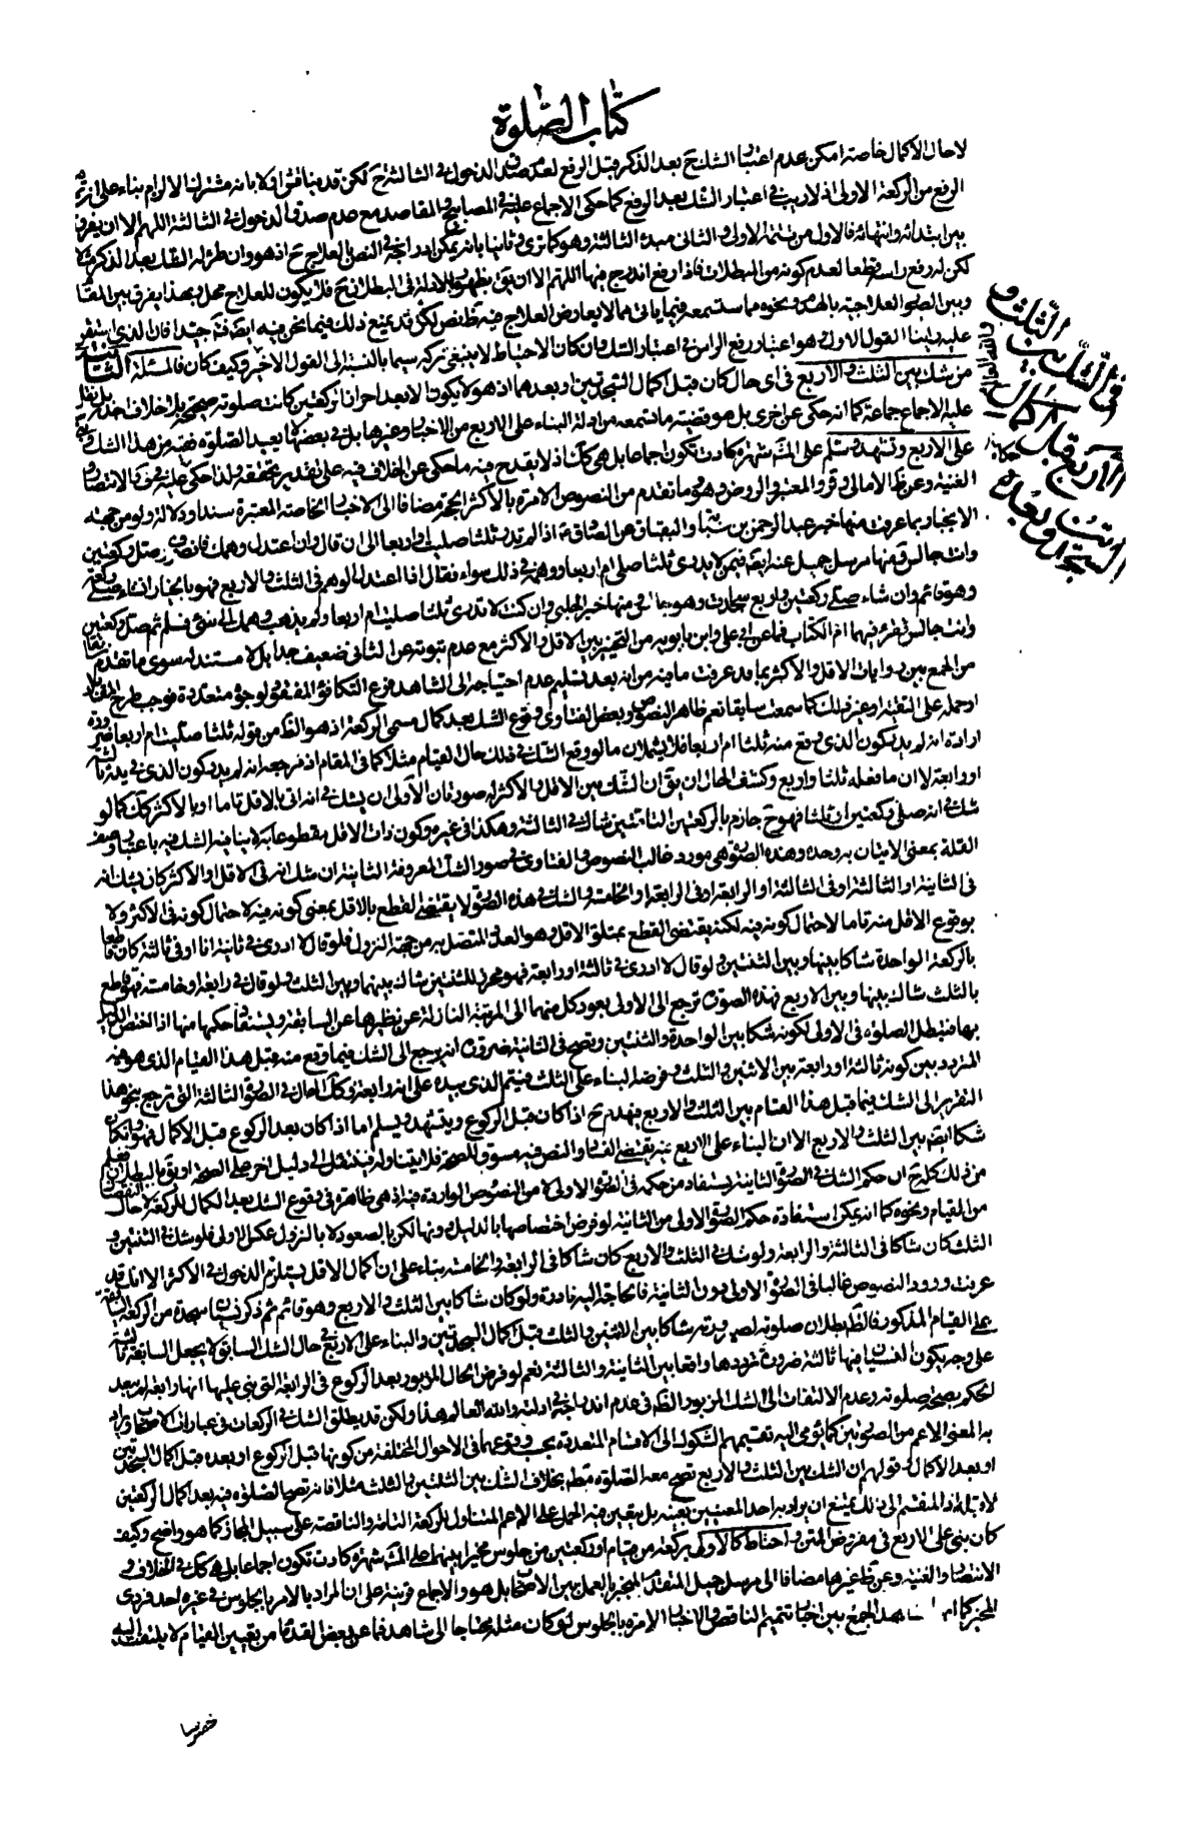 كتاب الصلوة
لا حال الاكمال خاصة امكن عدم اعتبار الشك ح بعد الذكر قبل الرفع لعدم صدق الدخول في الثالثة ح لكن قد يناقش اولا بانه
الرفع من الركعة الاولى اذ لا ريب في اعتبار الشك بعد الرفع كما حكى الاجماع عليه في المصابيح المقاصد مع عدم صدق الدخول في الثالثة اللهم الا ان يفرق
بين ابتدائه وانتهائه فالاول من تتمة الاولى والثانى مبدء الثالثة وهو كما ترى وثانيا بانه يمكن اندراجه في النص العلاج ح اذ هو وان طرء له الشك بعد الذكر
لكن له رفع راسه قطعا لعدم كونه من المبطلات فاذا رفع اندرج فيها اللهم الا ان يبقى ظهور الادلة في البطلان ح فلا يكون للعلاج محل وبهذا يفرق بين المقام
وبين الصور العلاجية بالهدم ونحوه مما ستسمعه فيما ياتي مما لا يعارض العلاج فيه ظ نص لكن قد يمنع ذلك فيما نحن فيه ايضا فت جيدا فان الذي استقر
عليه راينا القول الاول وهو اعتبار رفع الراس في اعتبار الشك وان كان الاحتياط لا ينبغى تركه سيما بالنسبة الى القول الاخير وكيف كان فالمسئلة الثانية
من شك بين الثلث والاربع في اى حال كان قبل اكمال السجدتين او بعدهما اذ هو لا يكون الا بعد احراز الركعتين كانت صلوته صحيحة بلا خلاف اجده بل نقل
عليه الاجماع جماعة كما انه حكى عن اخرى بل هو قضية ما تسمعه من ادلة البناء على الاربع من الاخبار وغيرها بل في بعضها لا يعيد الصلوة فقيه من هذا الشك
على الاربع وتشهد وسلم على المش شهرة كادت تكون اجماعا بل هي كك اذ لا يقدح فيه ما حكى عن الخلاف فيه على تقدير تحققه ولذا حكى عليه في ف والانتصار
الغنية وعن ظ الامالى وقر والمعتبر والروض وهو ما تقدم من النصوص الامرة بالاكثر الحجة مضافا الى الاخبار الخاصة المعتبرة سندا ودلالة ولو من جهة
الانجبار بما عرفت منها خبر عبد الرحمن بن سيابة والبقباق عن الصادق ع اذا لم تدر ثلثا صليت او اربعا الى ان قال وان اعتدل وهمك فانصرف وصل ركعتين
وانت جالس ومنها مرسل جميل عنه ايضا فيمن لا يدرى ثلثا صلى ام اربعا ووهمه في ذلك سواء فقال اذا اعتدل الوهم في الثلث والاربع فهو بالخيار ان شاء صلى ركعة
وهو قائم وان شاء صلى ركعتين واربع سجدات وهو جالس ومنها خبر الحلبي وان كنت لا تدرى ثلثا صليت ام اربعا ولم يذهب وهمك الى شئ فسلم ثم صل ركعتين
وانت جالس تقرء فيهما ام الكتاب فما عن ابي على وابن بابويه من التخيير بين الاقل والاكثر مع عدم ثبوته عن الثانى ضعيف جدا بل لا مستند له سوى ما تقدم
من الجمع بين روايات الاقل والاكثر بما قد عرفت ما فيه من انه بعد تسليم عدم احتياجه الى الشاهد فرع التكافؤ المفقود لوجوه متعددة فوجب طرح
او حمله على التقية او غير ذلك كما سمعت سابقا نعم ظاهر النصوص وبعض الفتاوى وقوع الشك بعد كمال مسمى الركعة اذ هو الظ من قوله ثلثا صليت ام اربعا
ارادة انه لم يدر كون الذى وقع منه ثلثا ام اربعا فلا يشملان ما لو وقع الشك في ذلك حال القيام مثلا كما في المقام اذ مرجعه انه لم يدر كون الذى في يده ثالثة
او رابعة لا ان ما فعله ثلثا واربع وكشف الحال ان يق ان الشك بين الاقل والاكثر له صورتان الاولى ان يشك في انه اتى بالاقل تاما او بالاكثر كك كما لو
شك في انه صلى ركعتين او ثلثا فهو ح جازم بالركعتين التامتين شاك في الثالثة وهكذا في غيره وكون ذات الاقل مقطوعا به لا ينافيه الشك فيه باعتبار وصف
القلة بمعنى الاتيان به وحده وهذه الصورة هي مورد غالب النصوص والفتاوى في صور الشك المعروفة الثانية ان شك انه في الاقل او الاكثر كان يشك انه
في الثانية او الثالثة او في الثالثة او الرابعة او في الرابعة او الخامسة والشك في هذه الصورة لا يقتضى القطع بالاقل بمعنى كونه فيه لاحتمال كونه في الاكثر ولا
بوقوع الاقل منه تاما لاحتمال كونه فيه لكنه يقتضى القطع بمتلو الاقل وهو العدد المتصل به من جهة النزول فلو قال لا ادرى في ثانية انا او في ثالثة كان قاطعا
بالركعة الواحدة شاكا بينها وبين الثنتين ولو قال لا ادرى في ثالثة او رابعة فهو محرز للثنتين شاك بينهما وبين الثلث ولو قال في رابعة او خامسة فهو قاطع
بالثلث شاك بينها وبين الاربع فهذه الصورة ترجع الى الاولى بعود كل منهما الى المرتبة النازلة عن نظيرها عن السابقة ويستفاد حكمها منها اذا اختص
بها فتبطل الصلوة في الاولى لكونه شكا بين الواحدة والثنتين وتصح في الثانية ضرورة انه يرجع الى الشك فيما وقع منه قبل هذا القيام الذى هو فيه
المتردد بين كونه ثالثة او رابعة بين الاثنين والثلث وفرضه البناء على الثلث فيتم الذى بيده على انه رابعة وكك الحال في الصورة الثالثة التى ترجع بنحو هذا
التقرير الى الشك فيما قبل هذا القيام بين الثلث والاربع فيهدم ح اذا كان قبل الركوع ويتشهد ويسلم اما اذا كان بعد الركوع قبل الاكمال فهو وان كان
شكا ايضا بين الثلث والاربع الا ان البناء على الاربع فيه يقتضى الفساد والنص فيه مسوق للصحة فلا يتناوله فينتقل الى دليل اخر على الصحة او يبقى بالبطلان
من ذلك كله ح ان حكم الشك في الصورة الثانية يستفاد من حكمه في الصورة الاولى لا من النصوص الواردة فيه اذ هي ظاهرة في وقوع الشك بعد الكمال للركعة لا حال
من القيام ونحوه كما انه يمكن استفادة حكم الصورة الاولى من الثانية لو فرض اختصاصها بالدليل دونها لكن بالصعود لا بالنزول عكس الاولى فلو شك في الثنتين و
الثلث كان شاكا في الثالثة والرابعة ولو شك في الثلث والاربع كان شاكا في الرابعة والخامسة بناء على ان كمال الاقل يستلزم الدخول في الاكثر الا انك قد
عرفت ورود النصوص غالبا في الصورة الاولى دون الثانية فالحاجة اليه نادرة ولو كان شاكا بين الثلث والاربع وهو قائم ثم ذكر نسيان سجدة من الركعة السابقة
على القيام المذكور فالظ بطلان صلوته لصيرورته شاكا بين الاثنين والثلث قبل اكمال السجدتين والبناء على الاربع في حال الشك السابق لا يجعل السابقة ثالثة
على وجه يكون النسيان فيها ثالثة ضرورة ترددها واقعا بين الثانية والثالثة نعم لو فرض الحال المزبور بعد الركوع في الرابعة التى بنى عليها انها رابعة لم يبعد
الحكم بصحة صلوته وعدم الالتفات الى الشك المزبور الظ في عدم اندراجه في ادلته والله العالم هذا ولكن قد يطلق الشك في الركعات في عبارات الاصحاب ويراد
به المعنى الاعم من الصورتين كما يومى اليه تقسيمهم الشكوك الى الاقسام المتعددة بحسب وقوعها في الاحوال المختلفة من كونها قبل الركوع او بعده قبل اكمال السجدتين
او بعد الاكمال وقولهم ان الشك بين الثلث والاربع تصح معه الصلوة مط بخلاف الشك بين الثنتين والثلث مثلا فانه تصح الصلوة فيه بعد اكمال الركعتين
لا قبله اذ المقسم الى ذلك يمتنع ان يراد به احد المعنيين بعينه بل يتعين فيه الحمل على الاعم المتناول للركعة التامة والناقصة على سبيل المجاز كما هو واضح وكيف
كان بنى على الاربع في مفروض المتن واحتاط كالاولى بركعة من قيام او ركعتين من جلوس مخيرا بينهما على المش شهرة كادت تكون اجماعا بل هي كك في الخلاف و
الانتصار والغنية وعن ظ غيرها مضافا الى مرسل جميل المتقدم المنجبر بالعمل بين الاصحاب بل هو والاجماع قرينة على ان المراد بالامر بالجلوس في غيره احد فردى
المخير كما انه شاهد الجمع بين اخبار تتميم الناقص والاخبار الامرة بالجلوس لو كان مثله محتاجا الى شاهد فما عن بعض القدماء من تعيين القيام لا يلتفت اليه
في الشك بين الثلث و
الاربع قبل اكمال
السجدتين او بعده